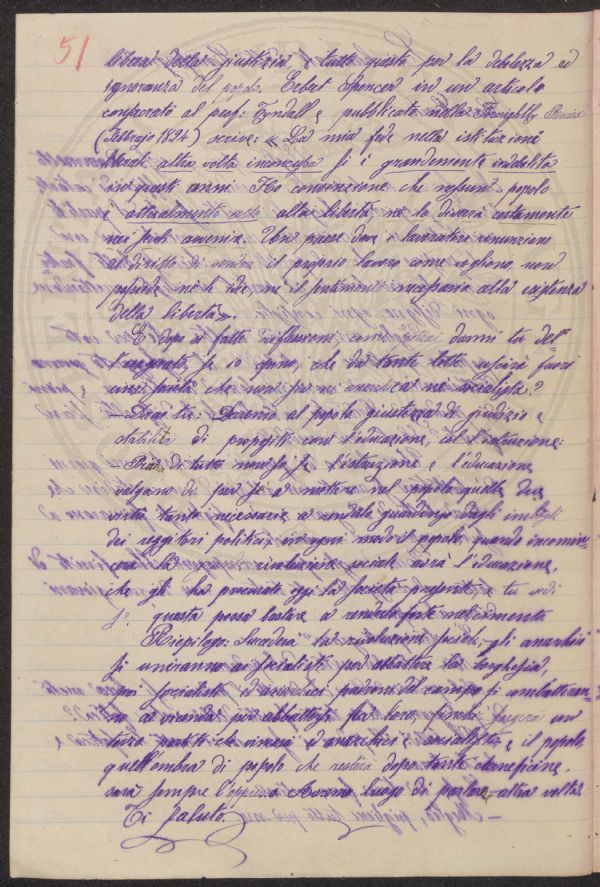 51
liberi della giustizia e tutto questo per la debolezza ed
ignoranza del popolo. Erbert Spencer in un articolo
consacrato al prof: Tyndall e pubblicato nella Fornightly Review
(Febbrajo 1894) scrive: « La mia fede nelle istituzioni
liberali altra volta inconcussa si è grandemente indebolita
in questi anni Ho convinzione che nessun popolo
è attualmente atto alla libertà, ne lo diverrà certamente
nei secoli avvenire. Un paese dove i lavoratori rinunziano
al diritto di vendere il proprio lavoro come vogliono, non
possiede nè le idee, nè il sentimento necessario alla esistenza
della libertà».
E dopo si fatte riflessioni, mi darai tu del-
l'ingrato, se io opino, che da tante lotte uscirà fuori
una società che non sia nè anarchica nè socialista?
— Dirai tu: Daremo al popolo giustezza di giudizio e
stabilità di propositi con l'educazione, col l'istruzione:
— Prima di tutto se l'istruzione e l'educazione
valgano di per sè a mettere nel popolo quelle due
virtù tanto necessarie a renderlo guardingo dagli imbrogli
dei reggitori politici, in ogni modo il popolo, quando incomin-
cerà la rivoluzione sociale avrà l'educazione,
che gli ha procurato oggi la società presente, e tu vedi
se questa possa bastare a renderlo forte nel cimento
Riepilogo: Succederà la rivoluzione sociale, gli anarchici
si uniranno ai socialisti per abbattere la borghesia,
poi socialisti ed anarchici padroni del campo si combatteran-
no a vicenda per abbattersi fra loro, finchè sorgerà un
terzo partito che vincerà ed anarchici e socialisti, e il popolo,
quell'ombra di popolo che resterà dopo tante carneficine,
sarà sempre l'oppresso. Avremo luogo di parlarne altra volta.
Ti saluto.